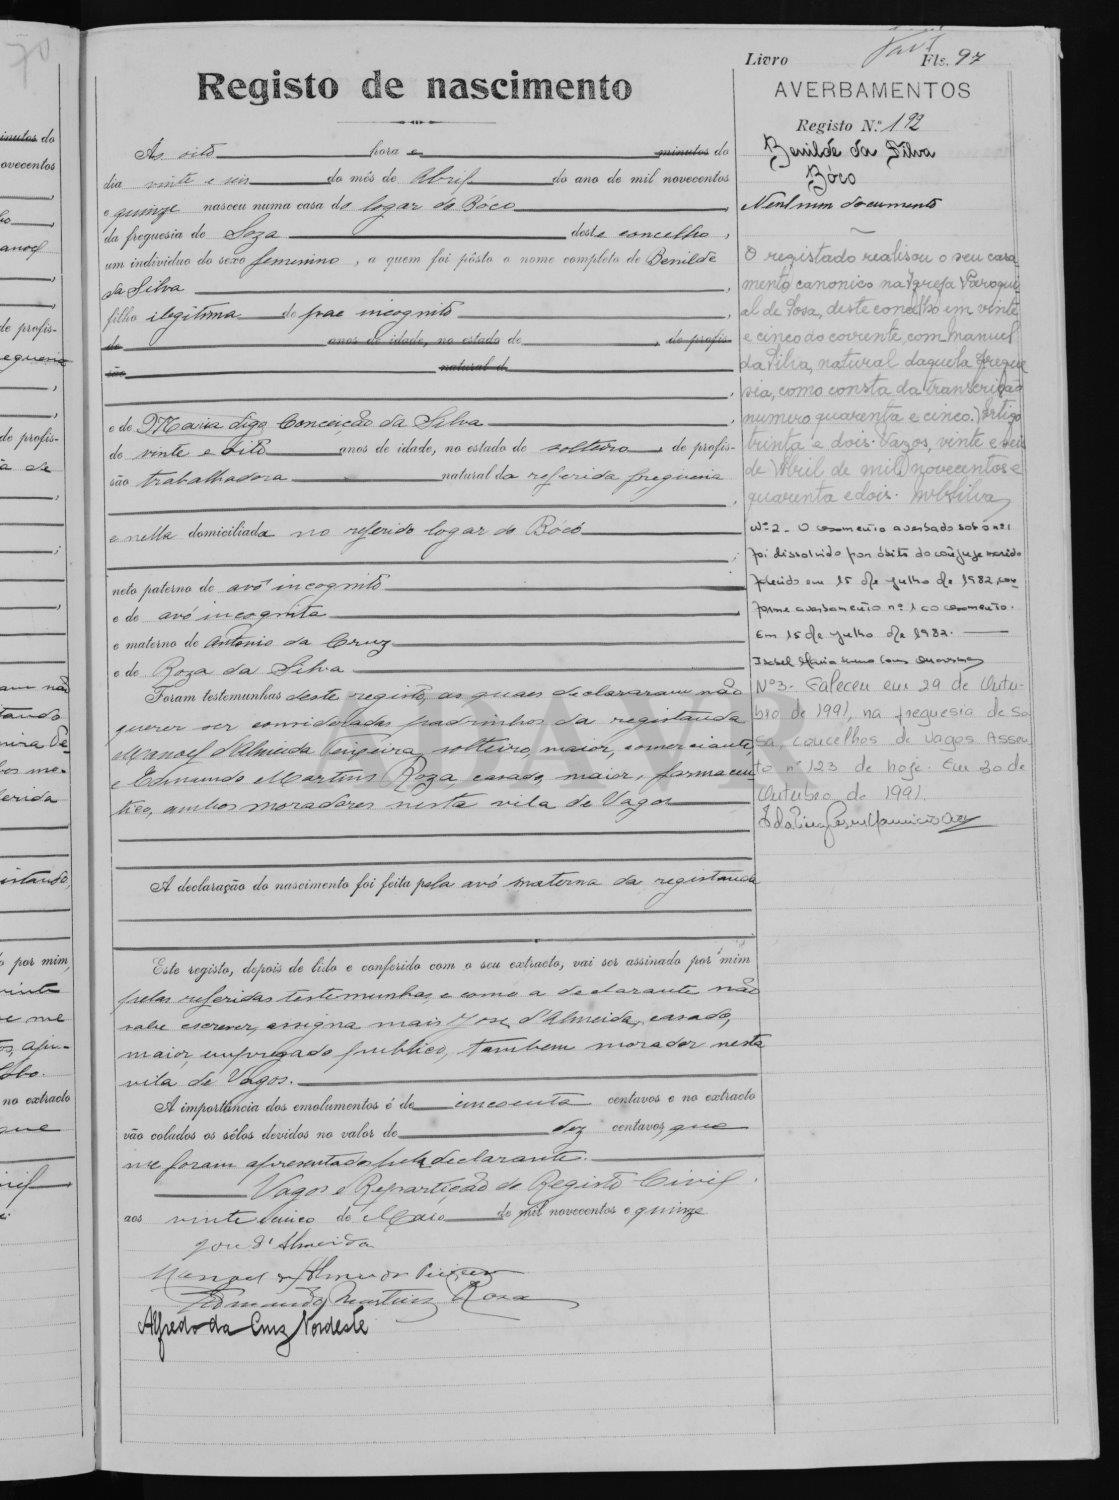 70
Livro Fls. 97
Registo de nascimento
AVERBAMENTOS
Registo N.º 192
Benilde da Silva
Bóco
Nenhum documento
Ás oito hora e minutos do
dia vinte e seis do mês de Abril do ano de mil novecentos
e quinze nasceu numa casa do logar do Bóco,
da freguesia de Soza deste concelho,
um individuo do sexo femenino, a quem foi pôsto o nome completo de Benilde
da Silva,
filho ilegitima de pae incognito,
de anos de idade, no estado de, de profis-
são natural d
e de Maria digo Conceição da Silva,
de vinte e oito anos de idade, no estado de solteira, de profis-
são trabalhadora natural da referida freguesia,
e nella domiciliada no referido logar do Bóco
neto paterno de avô incognito
e de avó incognita,
e materno de Antonio da Cruz
e de Roza da Silva
Foram testemunhas deste registo, as quaes declararam não
querer ser consideradas padrinhos da registanda
Manoel d'Almeida Teixeira, solteiro, maior, comerciante,
e Edmundo Martins Roza, casado, maior, farmaceu-
tico, ambos moradores nesta vila de Vagos
A declaração do nascimento foi feita pela avó materna da registanda
Este registo, depois de lido e conferido com o seu extracto, vai ser assinado por mim
pelas referidas testemunhas, e como a declarante não
sabe escrever, assigna mais José d'Almeida, casado,
maior, empregado publico, tambem morador nesta
vila de Vagos.
A importância dos emolumentos é de cincoenta centavos e no extracto
vão colados os sêlos devidos no valor de dez centavos, que
me foram apresentados pela declarante.
Vagos e Repartição do Registo Civil
aos vinte e cinco de Maio de mil novecentos e quinze
José d'Almeida
Manoel d'Almeida Teixeira
Edmundo Martins Roza
Alfredo da Cruz Nordeste
O registado realisou o seu casa
mento canonico na Igreja Paroqui
al de Sosa, deste concelho em vinte
e cinco do corrente, com Manuel
da Silva, natural daquela fregue
sia, como consta da transcrição
numero quarenta e cinco. Artigo
trinta e dois. Vagos, vinte e seis
de Abril de mil novecentos e
quarenta e dois.
Nº 2 - O casamento averbado sob o nº 1
foi dissolvido por óbito do cônjuge marido
falecido em 15 de julho de 1982, con
forme averbamento nº 1 ao casamento.
Em 15 de julho de 1982.
Nº 3 - Faleceu em 29 de Outu-
bro de 1991, na freguesia de So
sa, concelho de Vagos Assen
to nº 123 de hoje. Em 30 de
Outubro de 1991.
ADAVR